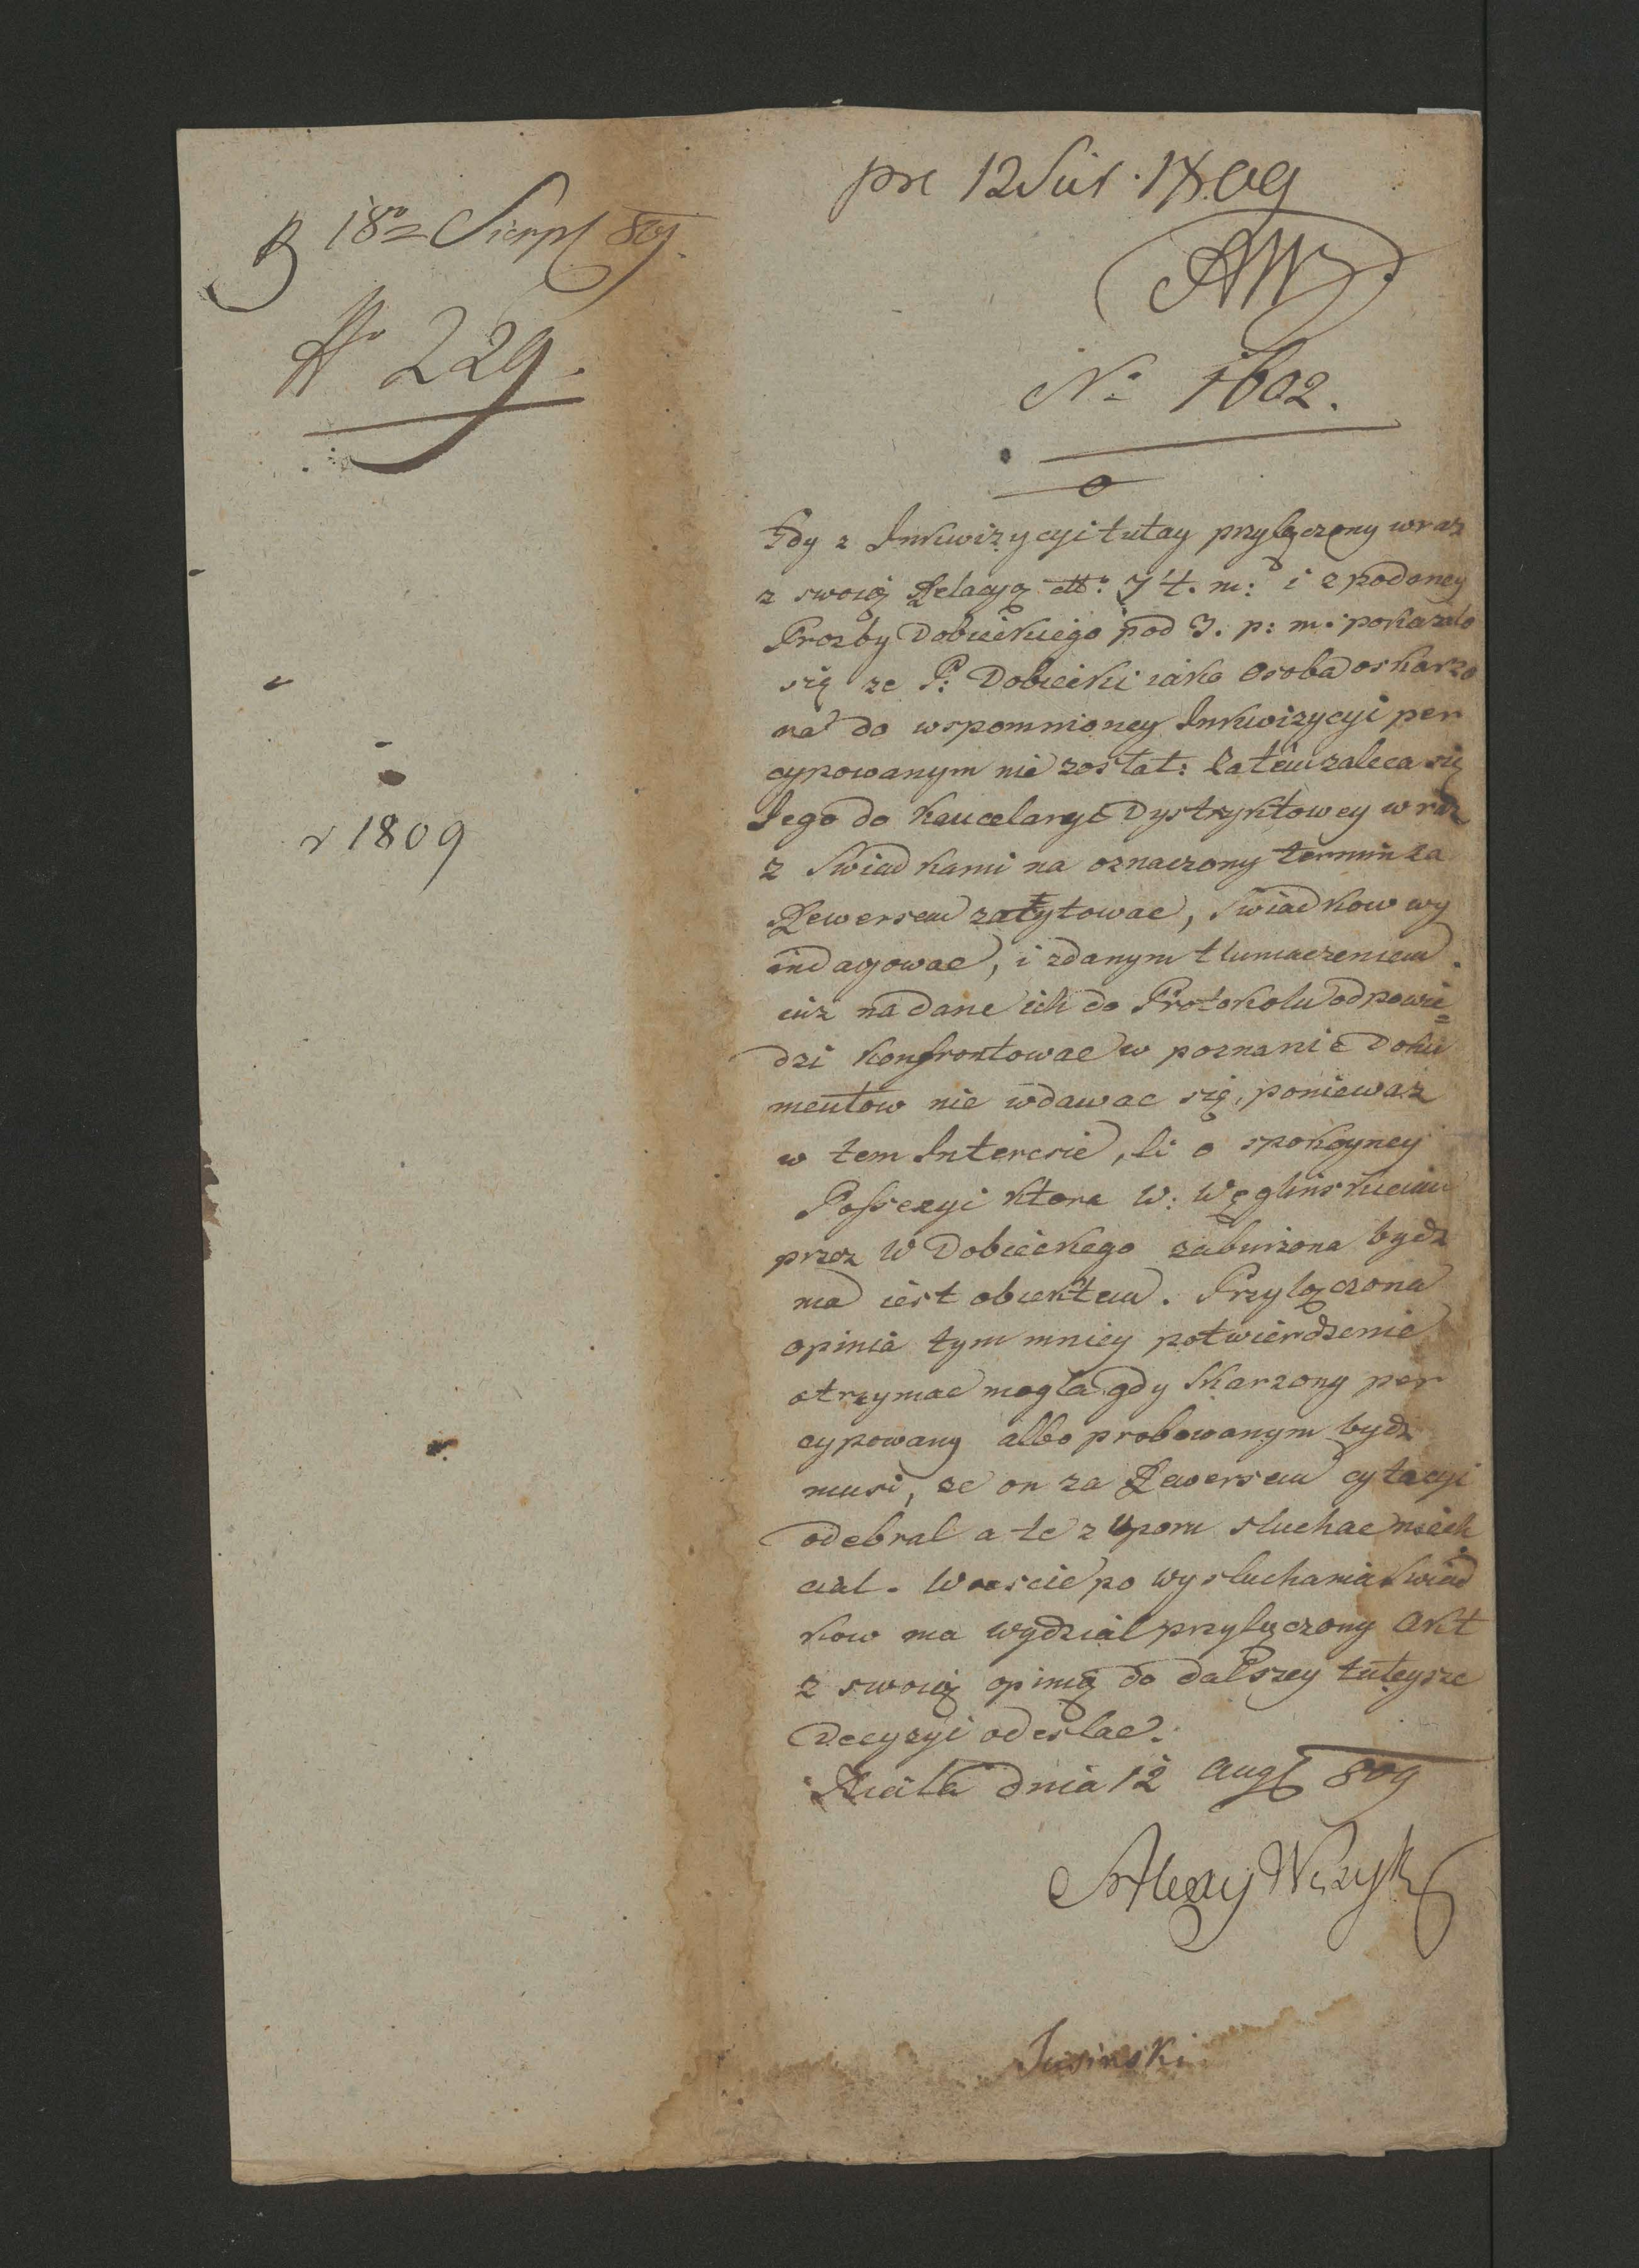 18 Sierp 809.
No 229.
r 1809
pre 12 Sier. 1809
AW
No 1602.
Gdy z Inkwizycyi tutay przyłączony wraz
z swoią Relacyą i z podaney
Prozby Dobieckiego pod J. p: m: pokazało
się ze P: Dobiecki iako Osoba oskarzo
na do wspomnioney Inkwizycyi per
cypowanym nie został: Zatem zaleca się
Jego do Kancelaryi Dystryktowey wraz
z Swiadkami na oznaczony termin za
Rewersem zacytowac, Swiadkow wy
indagowac, i zdanym tlumaczeniem
iuz na dane ich do Protokolu odpowie=
dzi konfrontowac w poznanie Doku
mentow nie wdawac się, poniewaz
w tem Interesie, li o spokoyney
Possesyi ktora W: Węglinskiemu
przez W Dobieckego zaburzona bydz
ma iest obiektem. Przylączona
opinia tym mniey potwierdzenie
otrzymac mogla gdy skarzony per
cypowany albo probowanym bydz
musi, ze on za Rewersem cytacyi
odebral a te z uporu sluchac niech
cial. Wrescie po wysluchaniu Swiad
kow ma wydzial przyłączony Akt
z swoią opinią do dalszey tuteysze
Decyzyi odeslac.
dnia 12 Aug 809
Alexy Wezyk
Jusinski